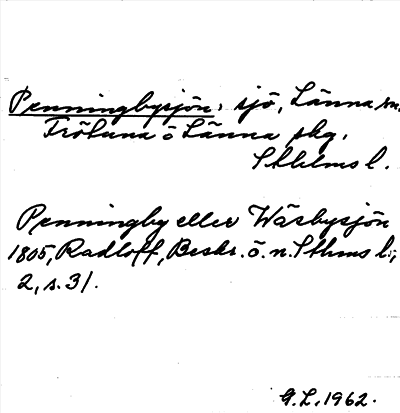 Penningbysjön, sjö, Länna sn.
Frötuna o Länna skg.
Sthlms l.
Penningby eller Wäsbysjön
1805, Radloff, Beskr. ö. n. Sthms l.,
2, s. 31.
G. L. 1962.